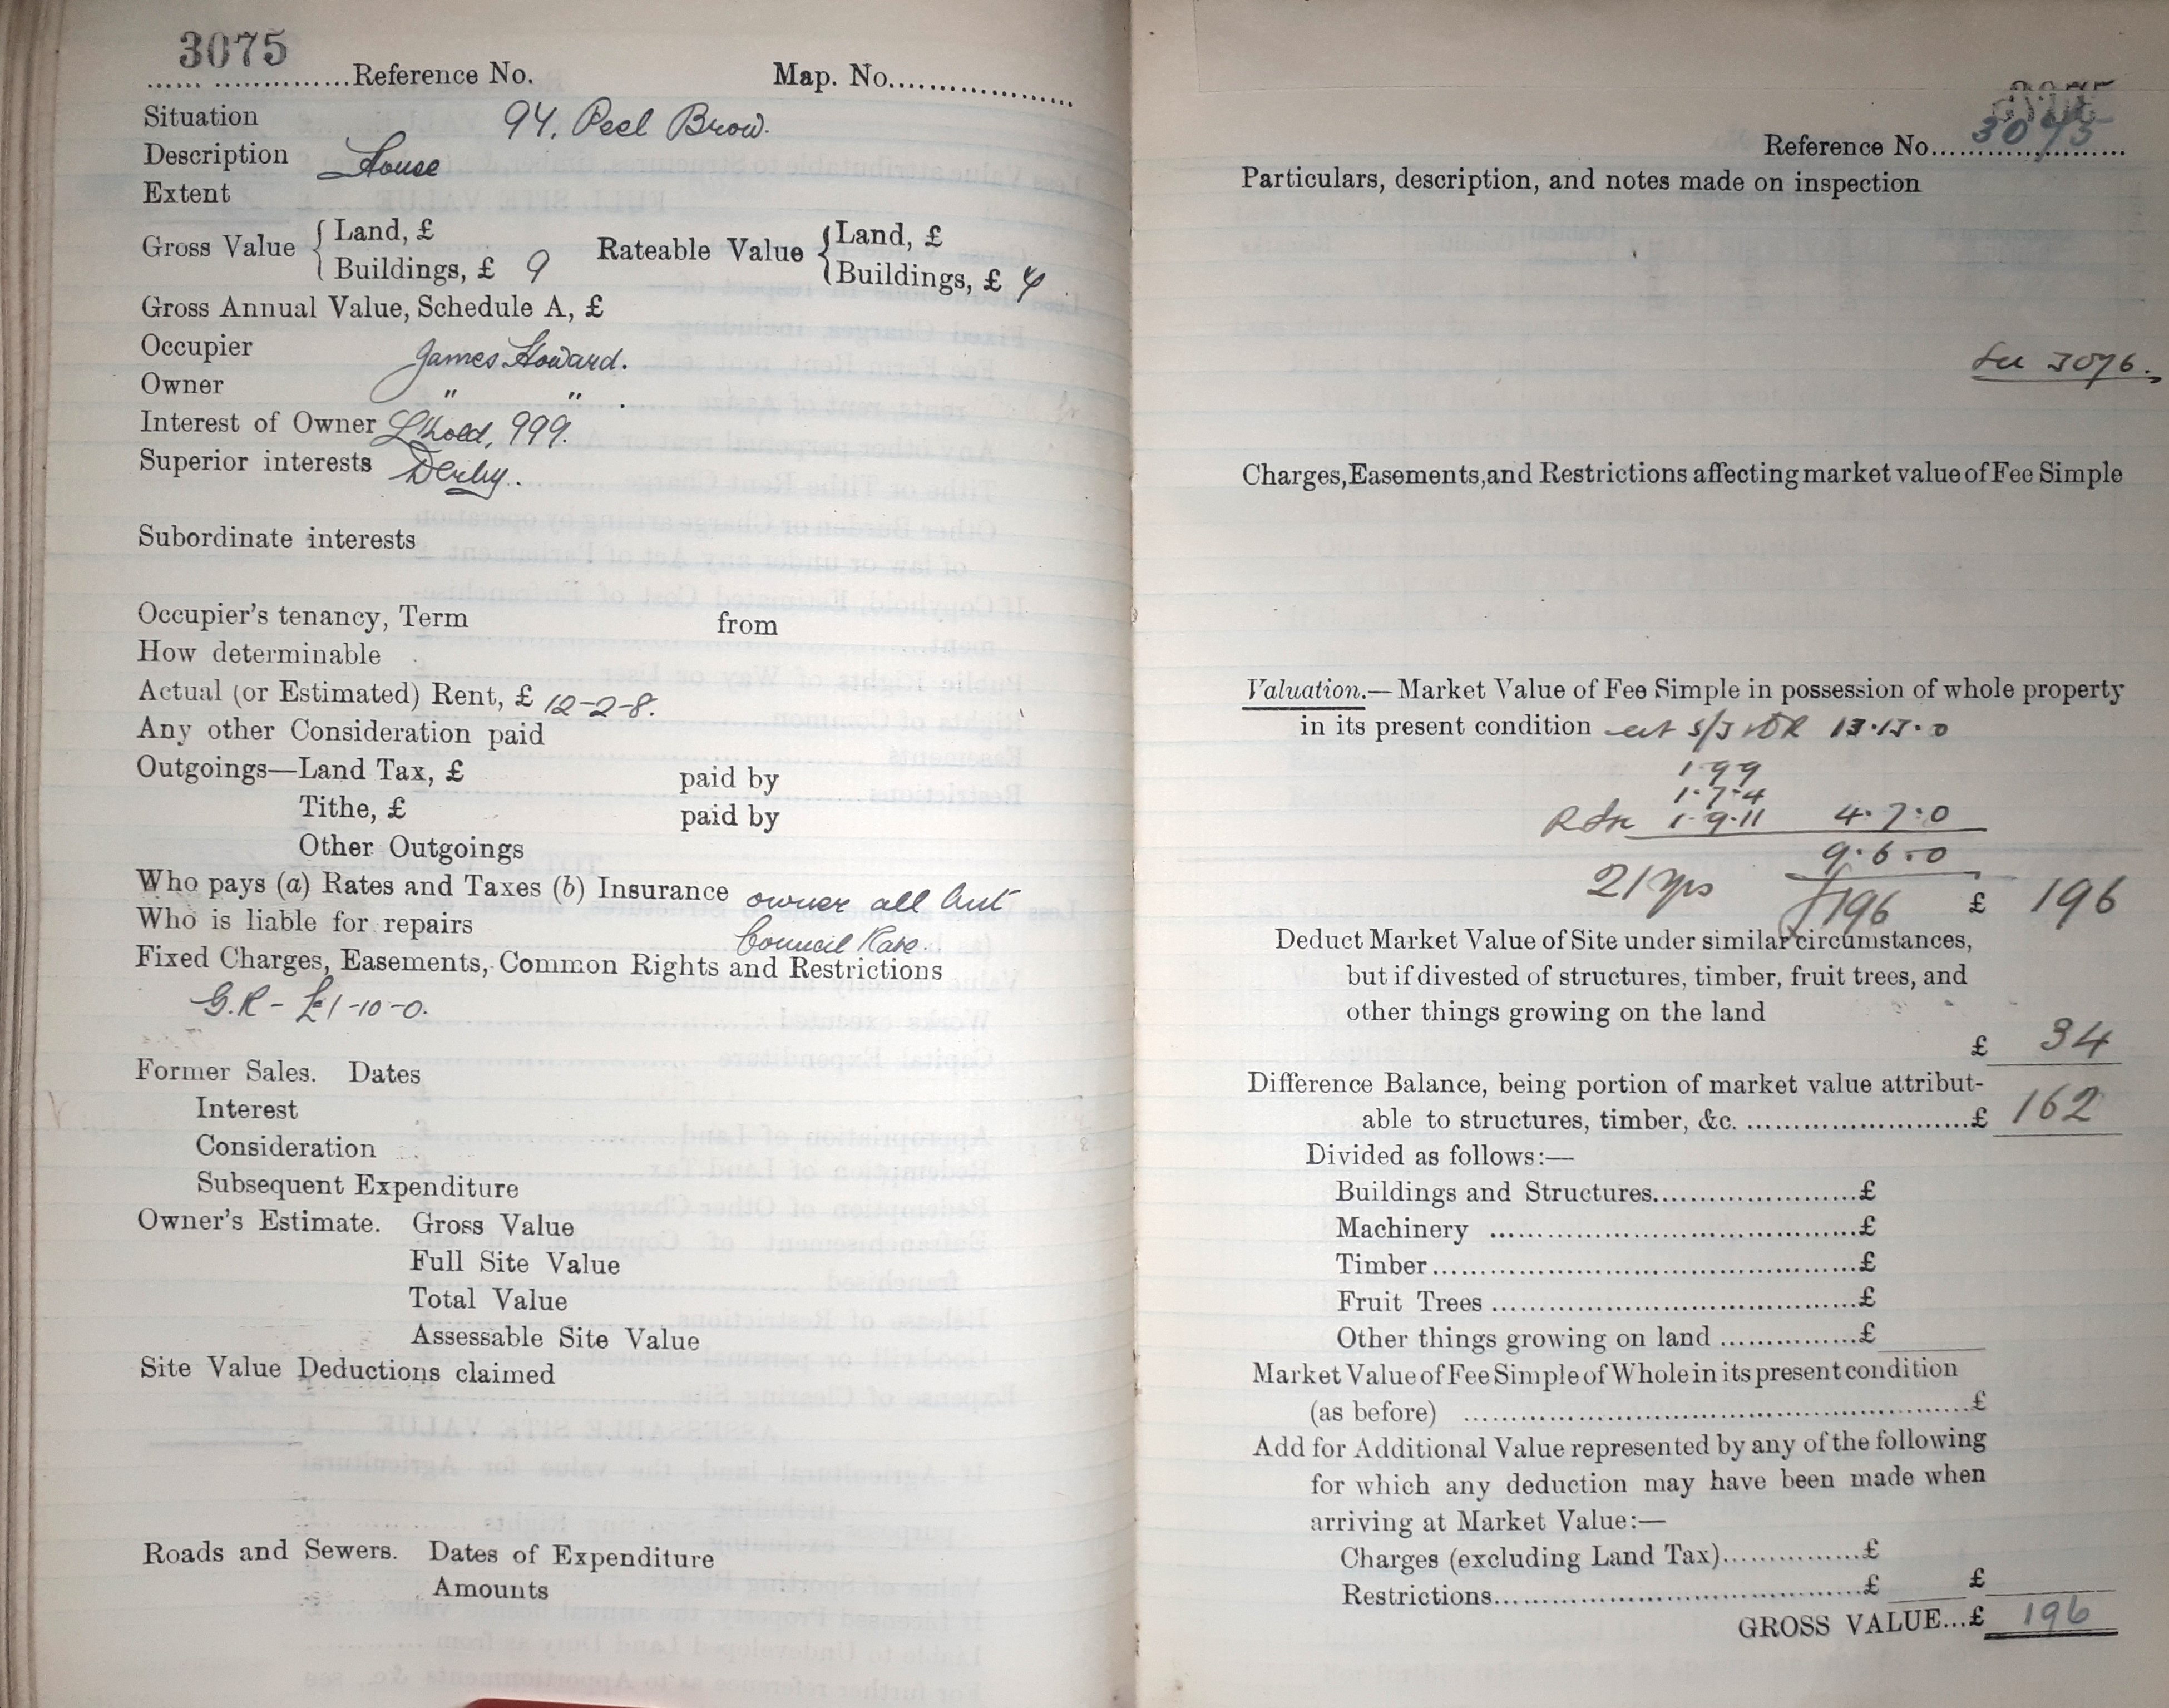 3075
...... ..............Reference No. Map. No.....................
Situation 94, Peel Brow.
Description House
Extent
Gross Value { Land, £ Rateable Value { Land, £
Buildings, £ 9 Buildings, £
Gross Annual Value, Schedule A, £
Occupier James Howard.
Owner " " .
Interest of Owner L'hold, 999.
Superior interests Derby.
Subordinate interests
Occupier's tenancy, Term from
How determinable
Actual (or Estimated) Rent, £ 12-2-8.
Any other Consideration paid
Outgoings—Land Tax, £ paid by
Tithe, £ paid by
Other Outgoings
Who pays (a) Rates and Taxes (b) Insurance owner all but
Who is liable for repairs Council Rate.
Fixed Charges, Easements, Common Rights and Restrictions
G.R - £1-10-0.
Former Sales. Dates
Interest
Consideration
Subsequent Expenditure
Owner's Estimate. Gross Value
Full Site Value
Total Value
Assessable Site Value
Site Value Deductions claimed
Roads and Sewers. Dates of Expenditure
Amounts
Reference No. 3075
Particulars, description, and notes made on inspection
See 3076.
Charges, Easements, and Restrictions affecting market value of Fee Simple
Valuation.— Market Value of Fee Simple in possession of whole property
in its present condition 5/3 13.13.0
1.9.9
1.7.4
1.9.11 4.7.0
9.6.0
21 yrs £196 £ 196
Deduct Market Value of Site under similar circumstances,
but if divested of structures, timber, fruit trees, and
other things growing on the land
£ 34
Difference Balance, being portion of market value attribut-
able to structures, timber, &c. ..........................£ 162
Divided as follows:—
Buildings and Structures.......................£
Machinery .........................................£
Timber................................................£
Fruit Trees .........................................£
Other things growing on land ...............£
Market Value of Fee Simple of Whole in its present condition
(as before) .......................................................£
Add for Additional Value represented by any of the following
for which any deduction may have been made when
arriving at Market Value:—
Charges (excluding Land Tax)...............£
Restrictions..........................................£ £
GROSS VALUE...£ 196